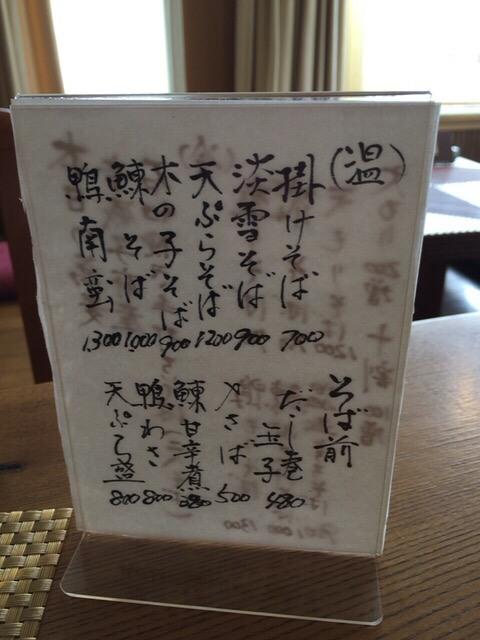 (温)
掛けそば 700
淡雪そば 900
天ぷらそば 1200
木の子そば 900
鰊そば 1,000
鴨南蛮 1300
そば前
だし巻玉子 480
〆さば 500
鰊甘辛煮 380
鴨わさ 800
天ぷら盛 800